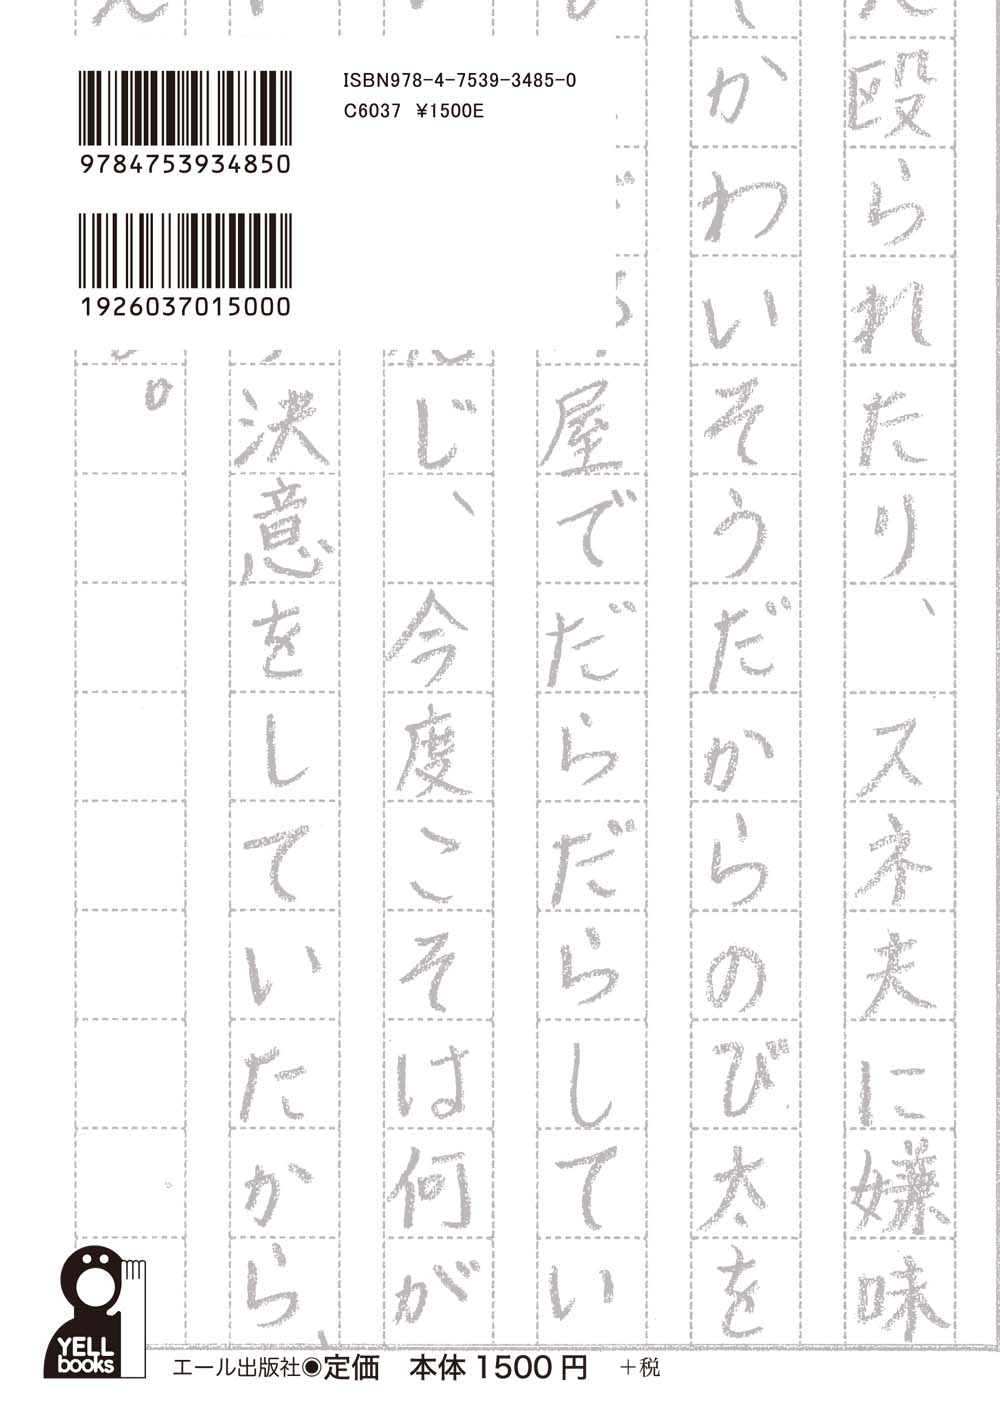 ISBN978-4-7539-3485-0
C6037 ¥1500E
9784753934850
1926037015000
殴られたり、スネ夫に嫌味
かわいそうだからのび太を
屋でだらだらしてい
じ、今度こそは何が
決意をしていたから、
。
YELL
books
エール出版社◉定価 本体1500円 +税